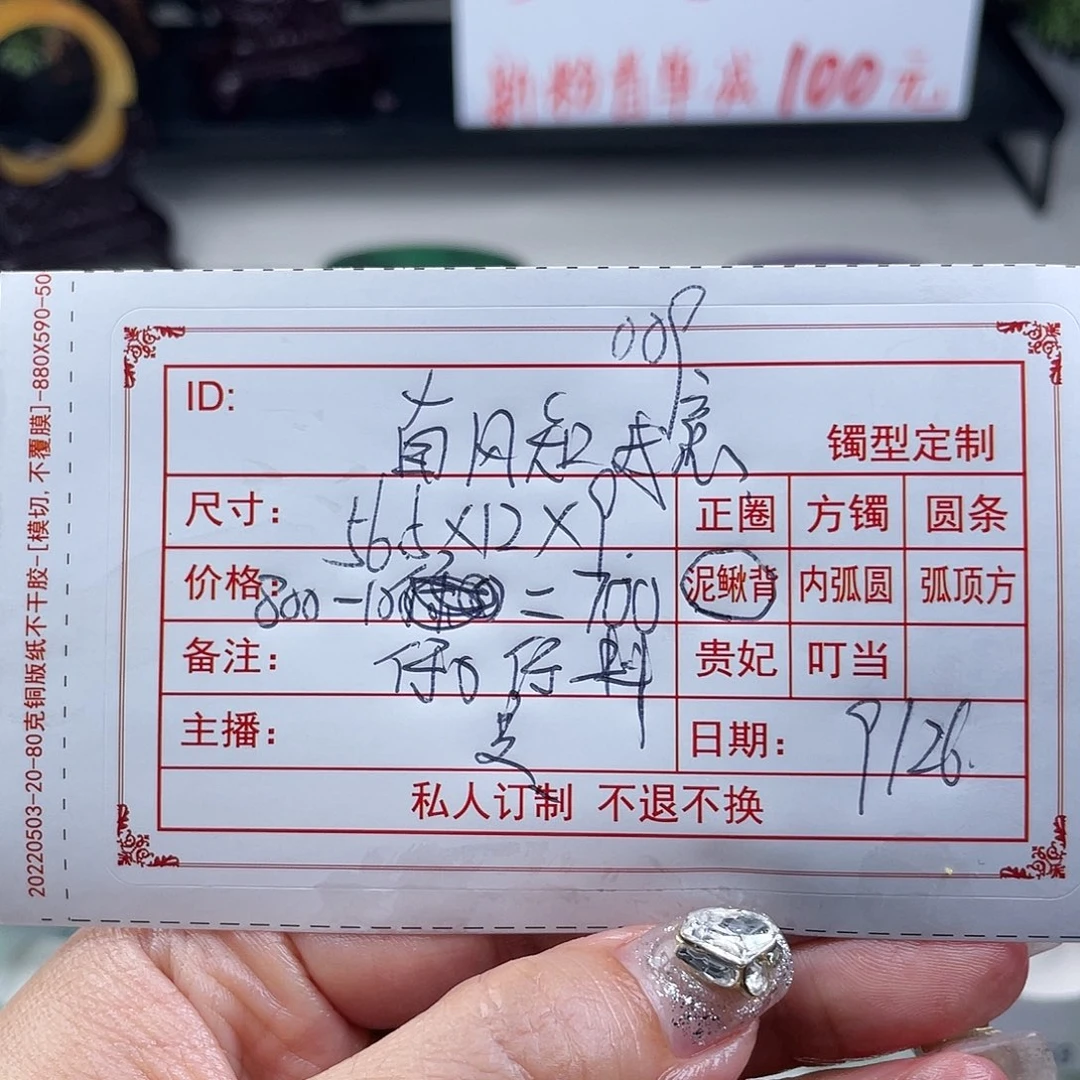 100元
20220503-20-80克铜版纸不干胶-[模切,不覆膜]-880X590-50
ID:
镯型定制
尺寸: 56.5X12X9.
正圈 方镯 圆条
价格: 800-10 =700
泥鳅背 内弧圆 弧顶方
备注:
贵妃 叮当
主播:
日期: 9/26.
私人订制 不退不换